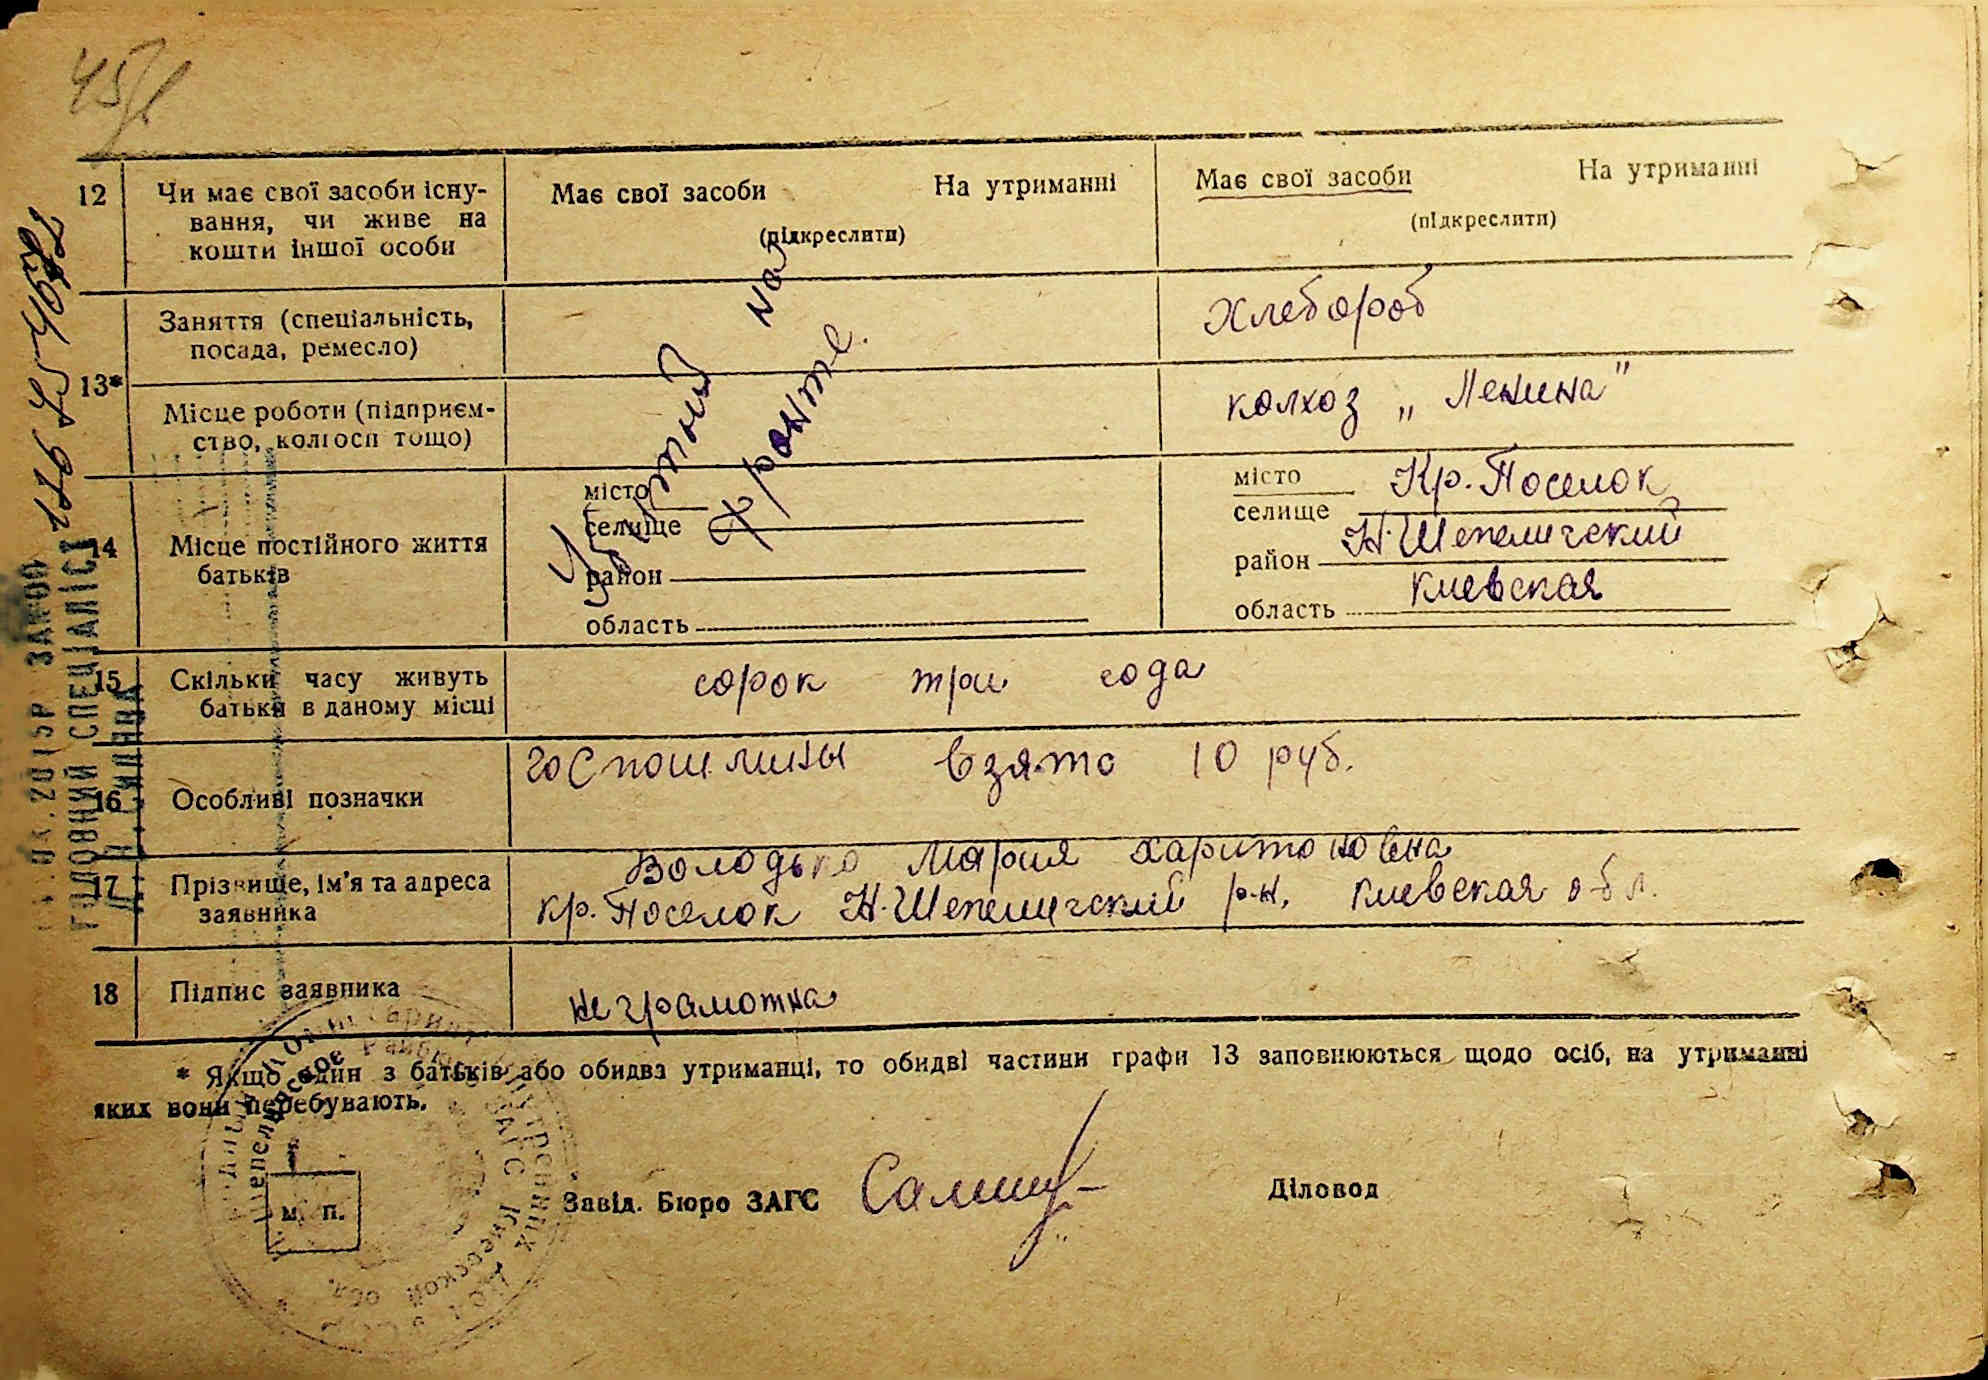 12
Чи має свої засоби існу-
вання, чи живе на
кошти іншої особи
Має свої засоби На утриманні
(підкреслити)
Має свої засоби На утриманні
(підкреслити)
13*
Заняття (спеціальність,
посада, ремесло)
Хлебороб
Місце роботи (підприєм-
ство, колгосп тощо)
колхоз „Ленина"
Убитый на
фронте.
14
Місце постійного життя
батьків
місто
селище
район
область
місто
селище Кр. Поселок
район Н. Шепеличский
область Киевская
15
Скільки часу живуть
батьки в даному місці
сорок три года
16
Особливі позначки
госпошлины взято 10 руб.
17
Прізвище, ім'я та адреса
заявника
Володько Мария Харитоновна
кр. Поселок Н. Шепеличский р-н. Киевская обл.
18
Підпис заявника
неграмотна
* Якщо один з батьків або обидва утриманці, то обидві частини графи 13 заповнюються щодо осіб, на утриманні
яких вони перебувають.
м. п.
Завід. Бюро ЗАГС
Діловод
ГОЛОВНИЙ СПЕЦІАЛІСТ